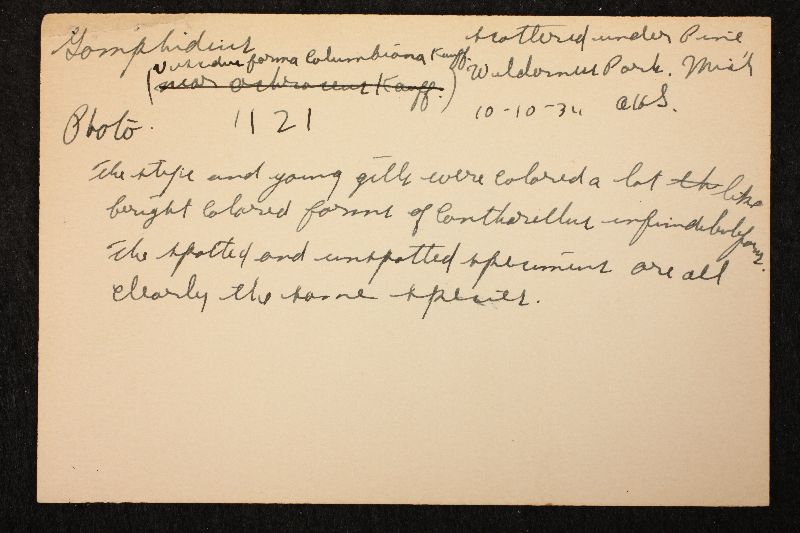 Gomphidius
viscidus forma Columbiana Kauff.
(near ochraceus Kauff.)
scattered under Pine
Wilderness Park. Mich
10-10-34 AHS.
Photo. 1121
The stipe and young gills were colored a lot th like
bright colored forms of Cantharellus infundibuliformis.
The spotted and unspotted specimens are all
clearly the same species.